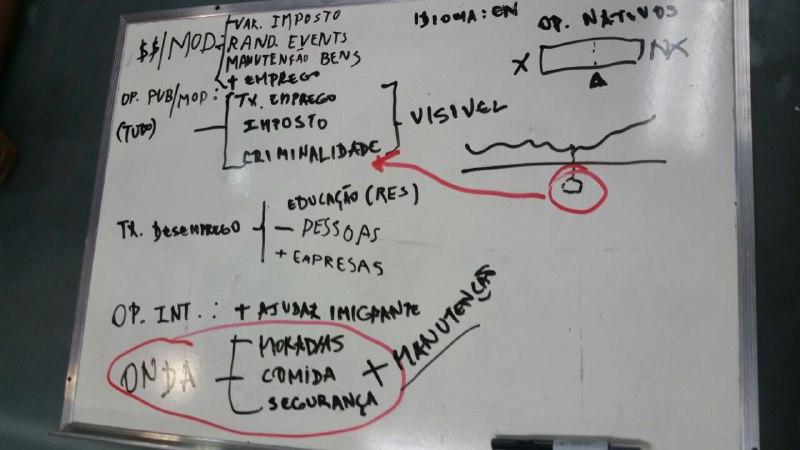 $$/MOD
VAR. IMPOSTO
RAND. EVENTS
MANUTENÇÃO BENS
+ EMPREGO
IDIOMA: EN
OP. NATIVOS
X
NX
OP. PUB/MOD:
(TUDO)
TX. EMPREGO
IMPOSTO
CRIMINALIDADE
VISIVEL
TX. DESEMPREGO
EDUCAÇÃO (RES)
— PESSOAS
+ EMPRESAS
OP. INT.: + AJUDAR IMIGRANTE
ONDA
MORADIAS
COMIDA
SEGURANÇA
+ MANUTENÇÃO